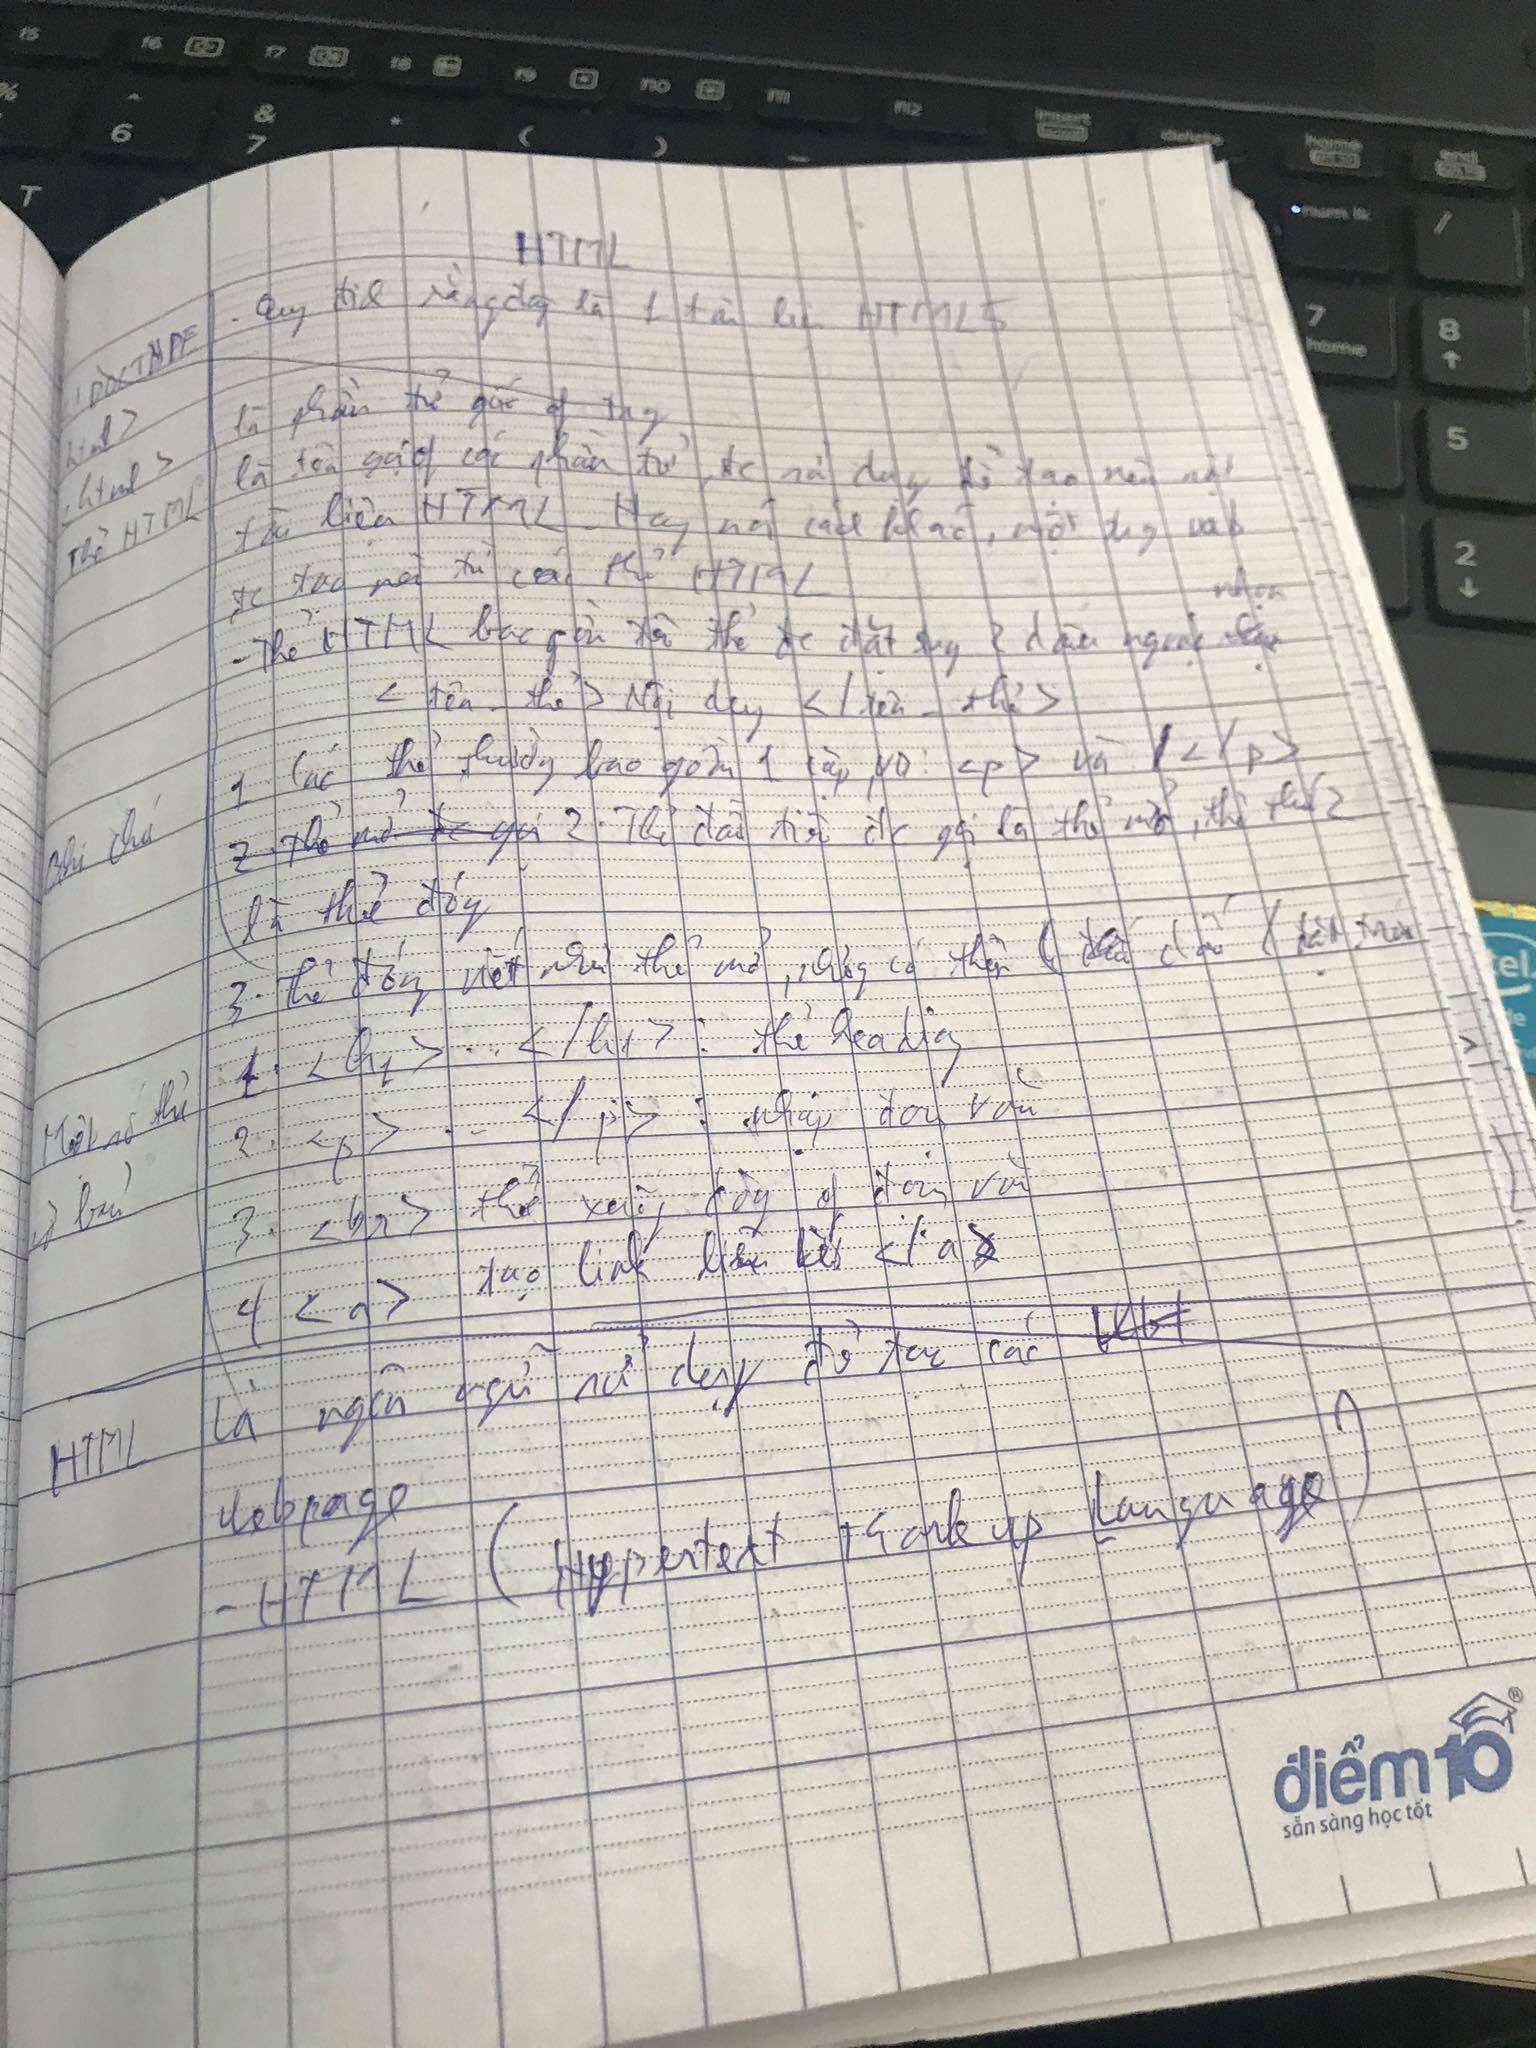 HTML
!DOCTYPE
html>
- Quy định rằng đây là 1 tài liệu HTML5
<html>
là phần tử gốc of trg
Thẻ HTML
là tên gọi of các phần tử, đc sử dụng để tạo nên một
tài liệu HTML. Hay nói cách khác, một trg web
đc tạo nên từ các thẻ HTML
- Thẻ HTML bao gồm tên thẻ đc đặt trg 2 dấu ngoặc nhọn
<tên_thẻ> Nội dung </tên_thẻ>
Ghi chú
1. Các thẻ thường bao gồm 1 cặp, VD: <p> và </p>
2. Thẻ mở đc gọi 2. Thẻ đầu tiên đc gọi là thẻ mở, thẻ thứ 2
là thẻ đóng
3. Thẻ đóng viết như thẻ mở, nhưng có thêm dấu / đặt trước
Một số thẻ
cơ bản
1. <h1> ... </h1> : thẻ heading
2. <p> ... </p> : nhập đoạn văn
3. <br> thẻ xuống dòng of đoạn văn
4 <a> tạo link liên kết </a>
HTML
Là ngôn ngữ sử dụng để tạo các
webpage
- HTML (Hypertext Markup Language)
điểm 10
sẵn sàng học tốt
f6 f7 f8 f9 f10 f11 f12 insert delete home end
6 7
T
num lk
7 home
8
5
2